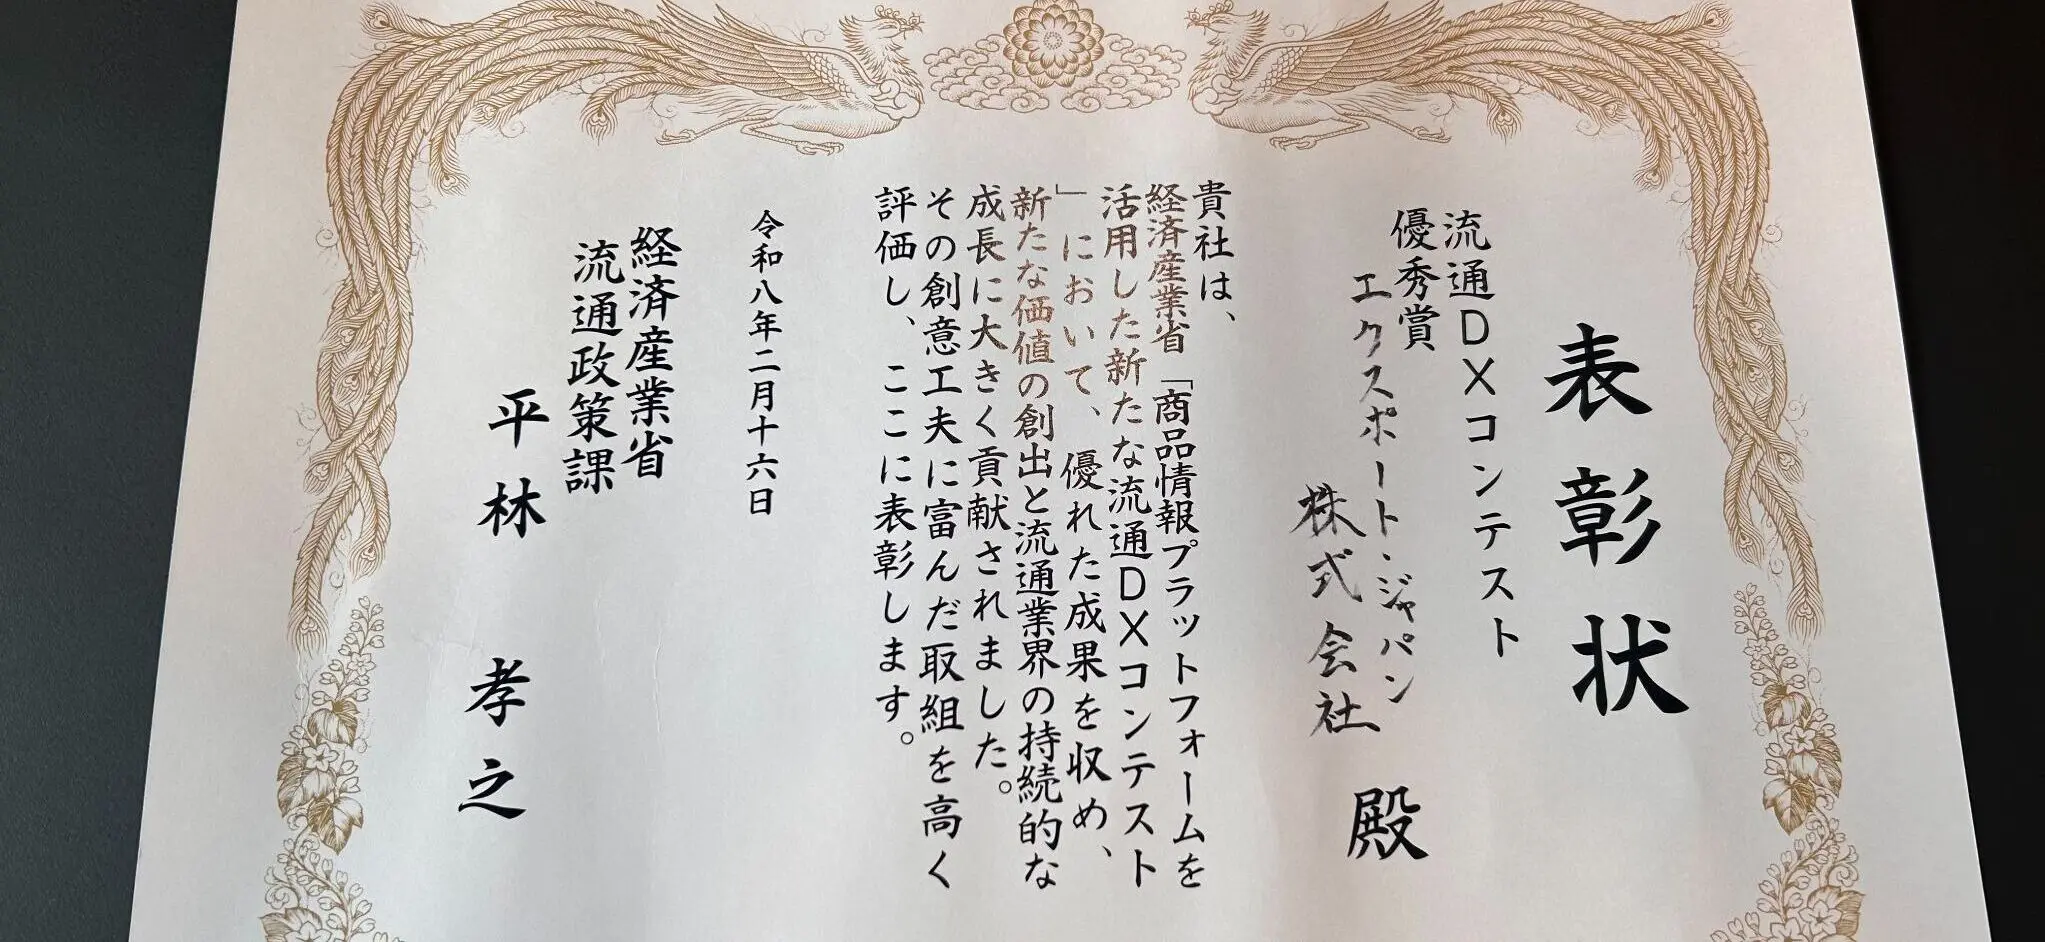 表彰状
流通DXコンテスト
優秀賞
エクスポート・ジャパン
株式会社 殿
貴社は、
経済産業省「商品情報プラットフォームを
活用した新たな流通DXコンテスト
」において、優れた成果を収め、
新たな価値の創出と流通業界の持続的な
成長に大きく貢献されました。
その創意工夫に富んだ取組を高く
評価し、ここに表彰します。
令和八年二月十六日
経済産業省
流通政策課
平林 孝之